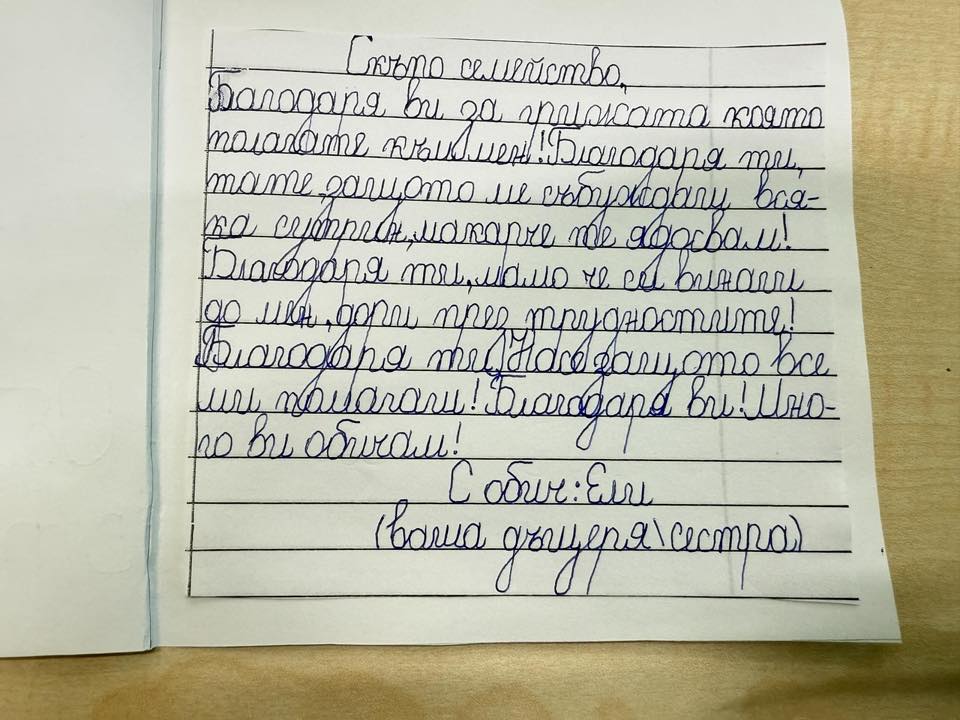 Скъпо семейство,
Благодаря ви за грижата която
полагате към мен! Благодаря ти,
тате, защото ме събуждаш вся-
ка сутрин, макар че те ядосвам!
Благодаря ти, мамо че си винаги
до мен, дори през трудностите!
Благодаря ти, Насо защото все
ми помагаш! Благодаря ви! Мно-
го ви обичам!
С обич: Ели
(ваша дъщеря\сестра)